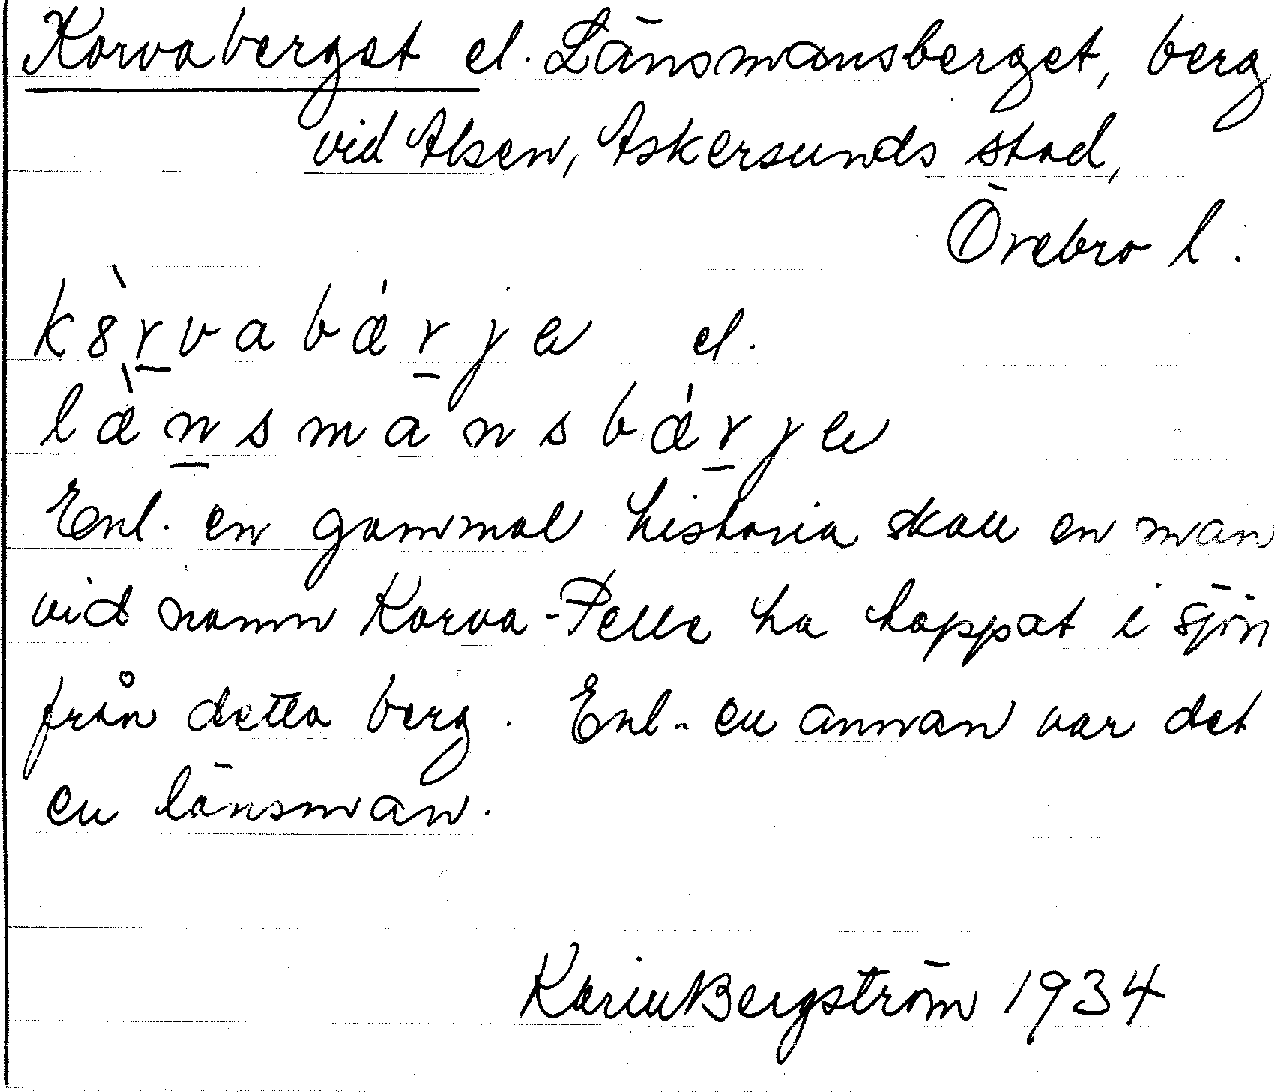 Korvaberget el. Länsmansberget, berg
vid Alsen, Askersunds stad,
Örebro l.
k8̀r̲vabǽr̲je el.
lǣ̀n̲smansbǽr̲je
Enl. en gammal historia skall en man
vid namn Korva-Pelle ha hoppat i sjön
från detta berg. Enl. en annan var det
en länsman.
Karin Bergström 1934